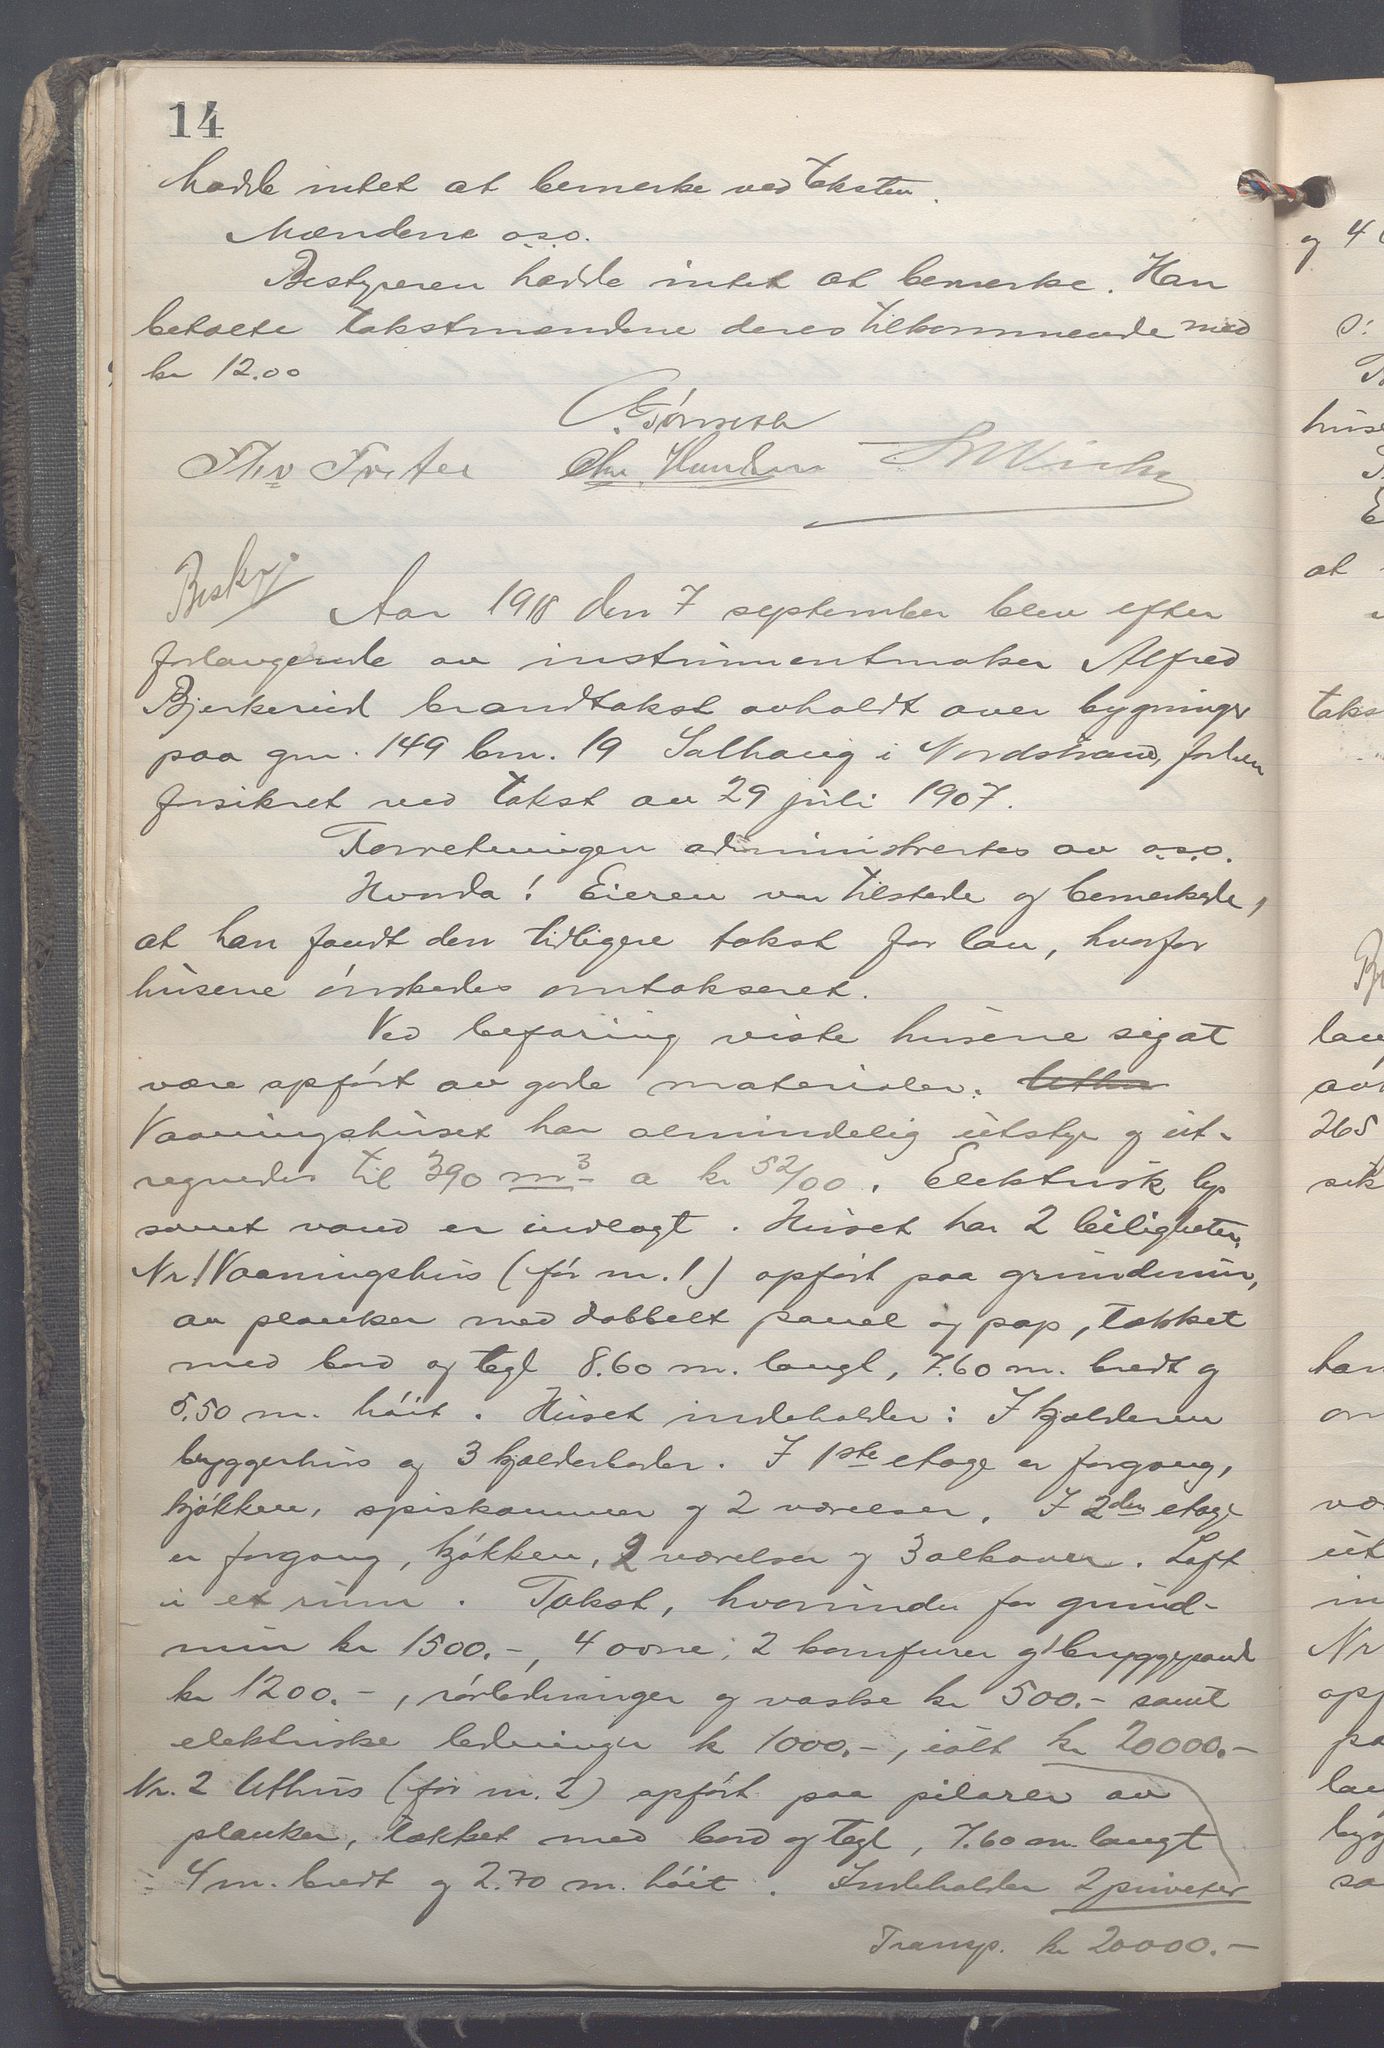 14
hadde intet at bemerke ved taksten.
Mændene o.s.o.
Bestyreren hadde intet at bemerke. Han
betalte takstmændene deres tilkommende med
kr 12.00
Beskr.
Aar 1918 den 7 september blev efter
forlangende av instrumentmaker Alfred
Bjerkerud brandtakst avholdt over bygninger
paa gnr. 149 bnr. 19 Solhaug i Nordstrand, forhen
forsikret ved takst av 29 juli 1907.
Forretningen administrertes av o.s.o.
Hvorda! Eieren var tilstede og bemerkede,
at han fandt den tidligere takst for lav, hvorfor
husene ønskedes omtakseret.
Ved befaring viste husene sig at
være opført av gode materialer. Uthu
Vaaningshuset har almindelig utstyr og ut-
regnedes til 390 m3 a kr 52/00. Elektrisk lys
samt vand er indlagt. Huset har 2 leiligheter.
Nr. 1 Vaaningshus (før nr. 1) opført paa grundmur,
av planker med dobbelt panel og pap, tækket
med bord og tegl 8.60 m. langt, 7.60 m. bredt og
5.50 m. høit. Huset indeholder: I kjælderen
bryggerhus og 3 kjælderboder. I 1ste etage er forgang,
kjøkken, spiskammer og 2 værelser. I 2den etage
er forgang, kjøkken, 2 værelser og 3 alkover. Loft
i et rum. Takst, hvorunder for grund-
mur kr 1500.-, 4 ovne, 2 komfurer og 1 bryggepande
kr 1200.-, rørledninger og vaske kr 500.- samt
elektriske ledninger kr 1000.-, ialt kr 20000.-
Nr. 2 Uthus (før nr. 2) opført paa pilarer av
planker, tækket med bord og tegl, 7.60 m. langt
4 m. bredt og 2.70 m. høit. Indeholder 2 priveter
Transp. kr 20000.-
og 4
huse
at
takst
265
Nr